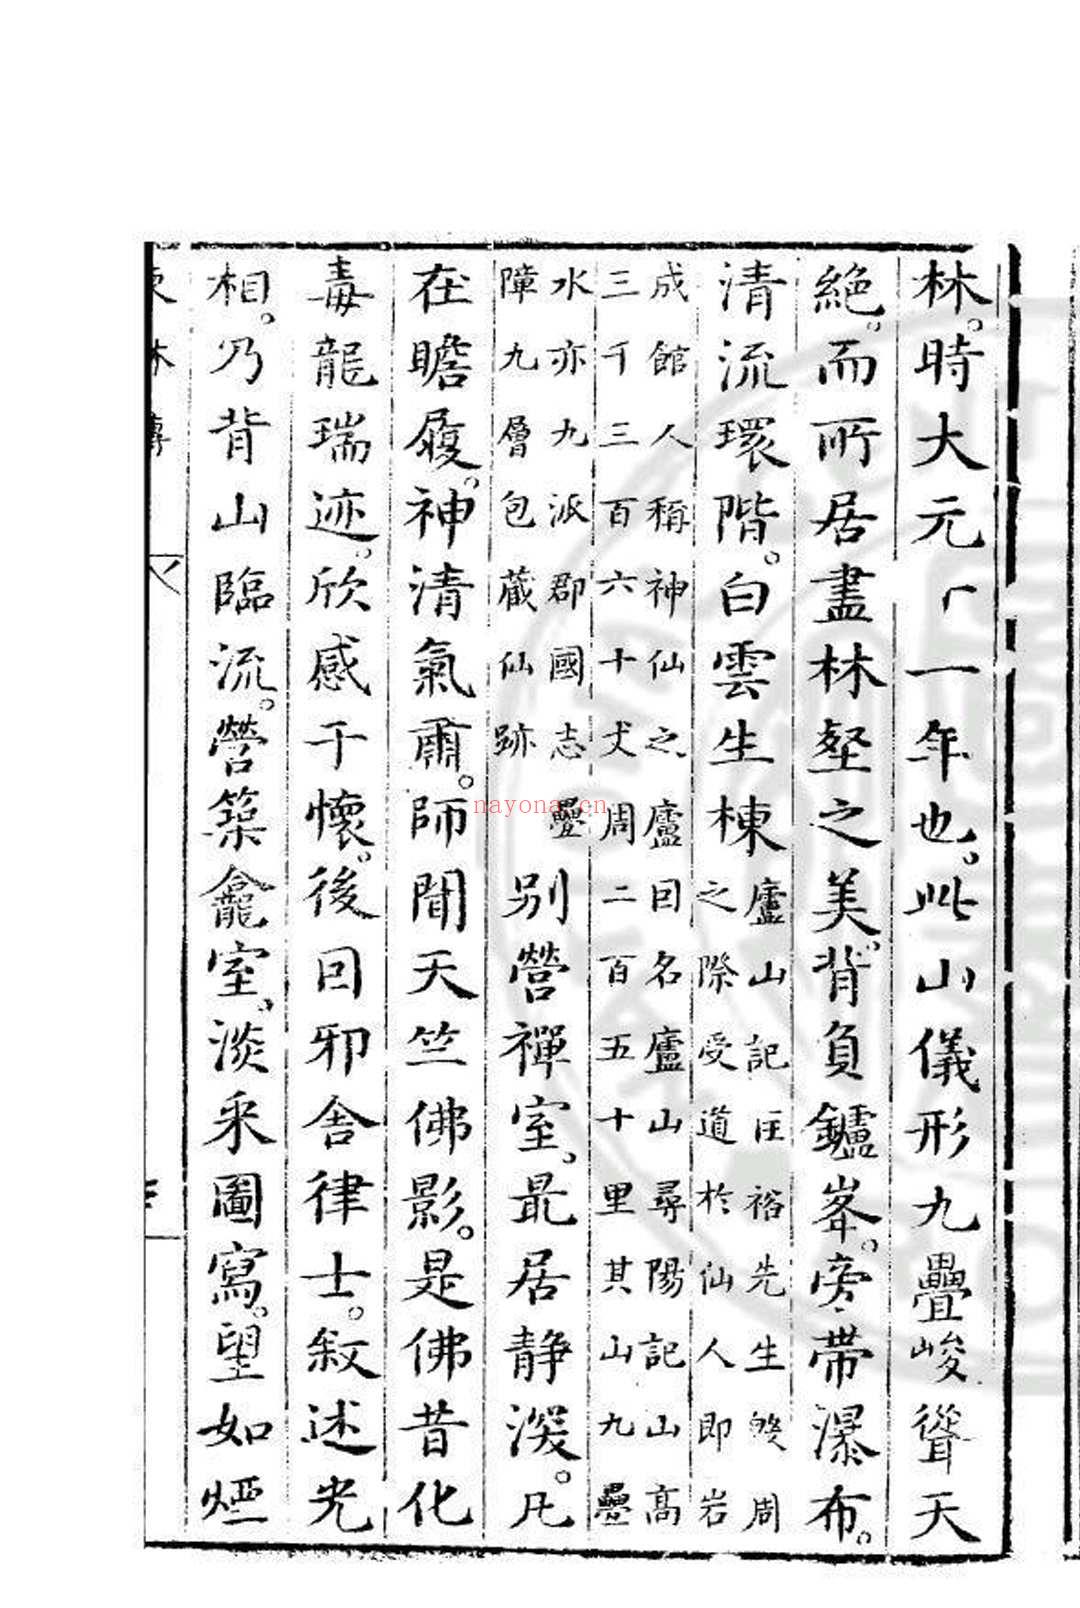 林。時大元一年也。此山儀形九疊峻聳天
絕。而所居盡林壑之美。背負鑪峯。旁帶瀑布。
清流環階。白雲生棟廬山記匡裕先生殷周
之際受道於仙人即岩
成館人稱神仙之廬因名廬山尋陽記山高
三千三百六十丈周二百五十里其山九疊
水亦九派郡國志疊
障九層包藏仙跡別營禪室。最居静深。凡
在瞻履。神清氣肅。師聞天竺佛影。是佛昔化
毒龍瑞迹。欣感于懷。後因邪舍律士。敘述光
相。乃背山臨流。營築龕室。淡采圖寫。望如煙
東林傳
nayona.cn